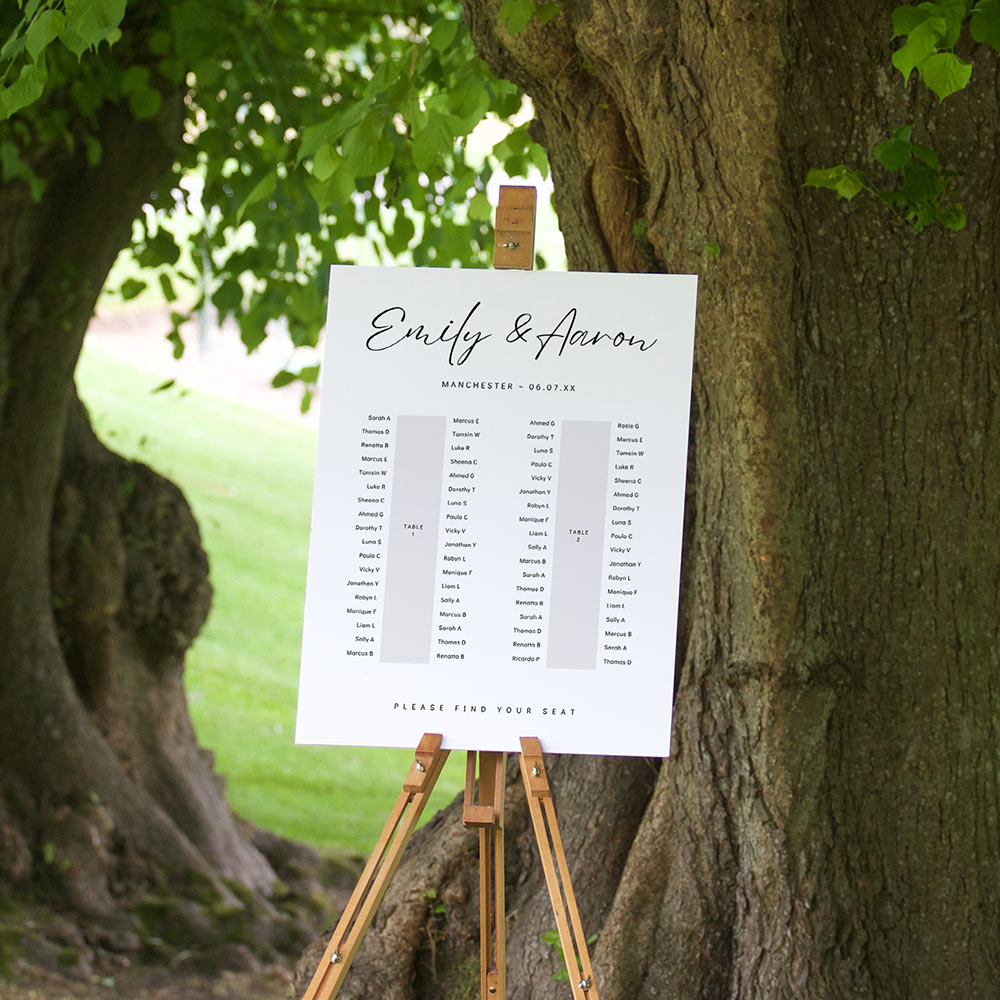 Emily & Aaron
MANCHESTER ~ 06.07.XX
Sarah A
Thomas D
Renatta B
Marcus E
Tamsin W
Luke R
Sheena C
Ahmed G
Dorothy T
Luna S
Paula C
Vicky V
Jonathan Y
Robyn L
Monique F
Liam L
Sally A
Marcus B
TABLE
1
Marcus E
Tamsin W
Luke R
Sheena C
Ahmed G
Dorothy T
Luna S
Paula C
Vicky V
Jonathan Y
Robyn L
Monique F
Liam L
Sally A
Marcus B
Sarah A
Thomas D
Renatta B
Ahmed G
Dorothy T
Luna S
Paula C
Vicky V
Jonathan Y
Robyn L
Monique F
Liam L
Sally A
Marcus B
Sarah A
Thomas D
Renatta B
Sarah A
Thomas D
Renatta B
Ricardo P
TABLE
2
Rosie G
Marcus E
Tamsin W
Luke R
Sheena C
Ahmed G
Dorothy T
Luna S
Paula C
Vicky V
Jonathan Y
Robyn L
Monique F
Liam L
Sally A
Marcus B
Sarah A
Thomas D
PLEASE FIND YOUR SEAT